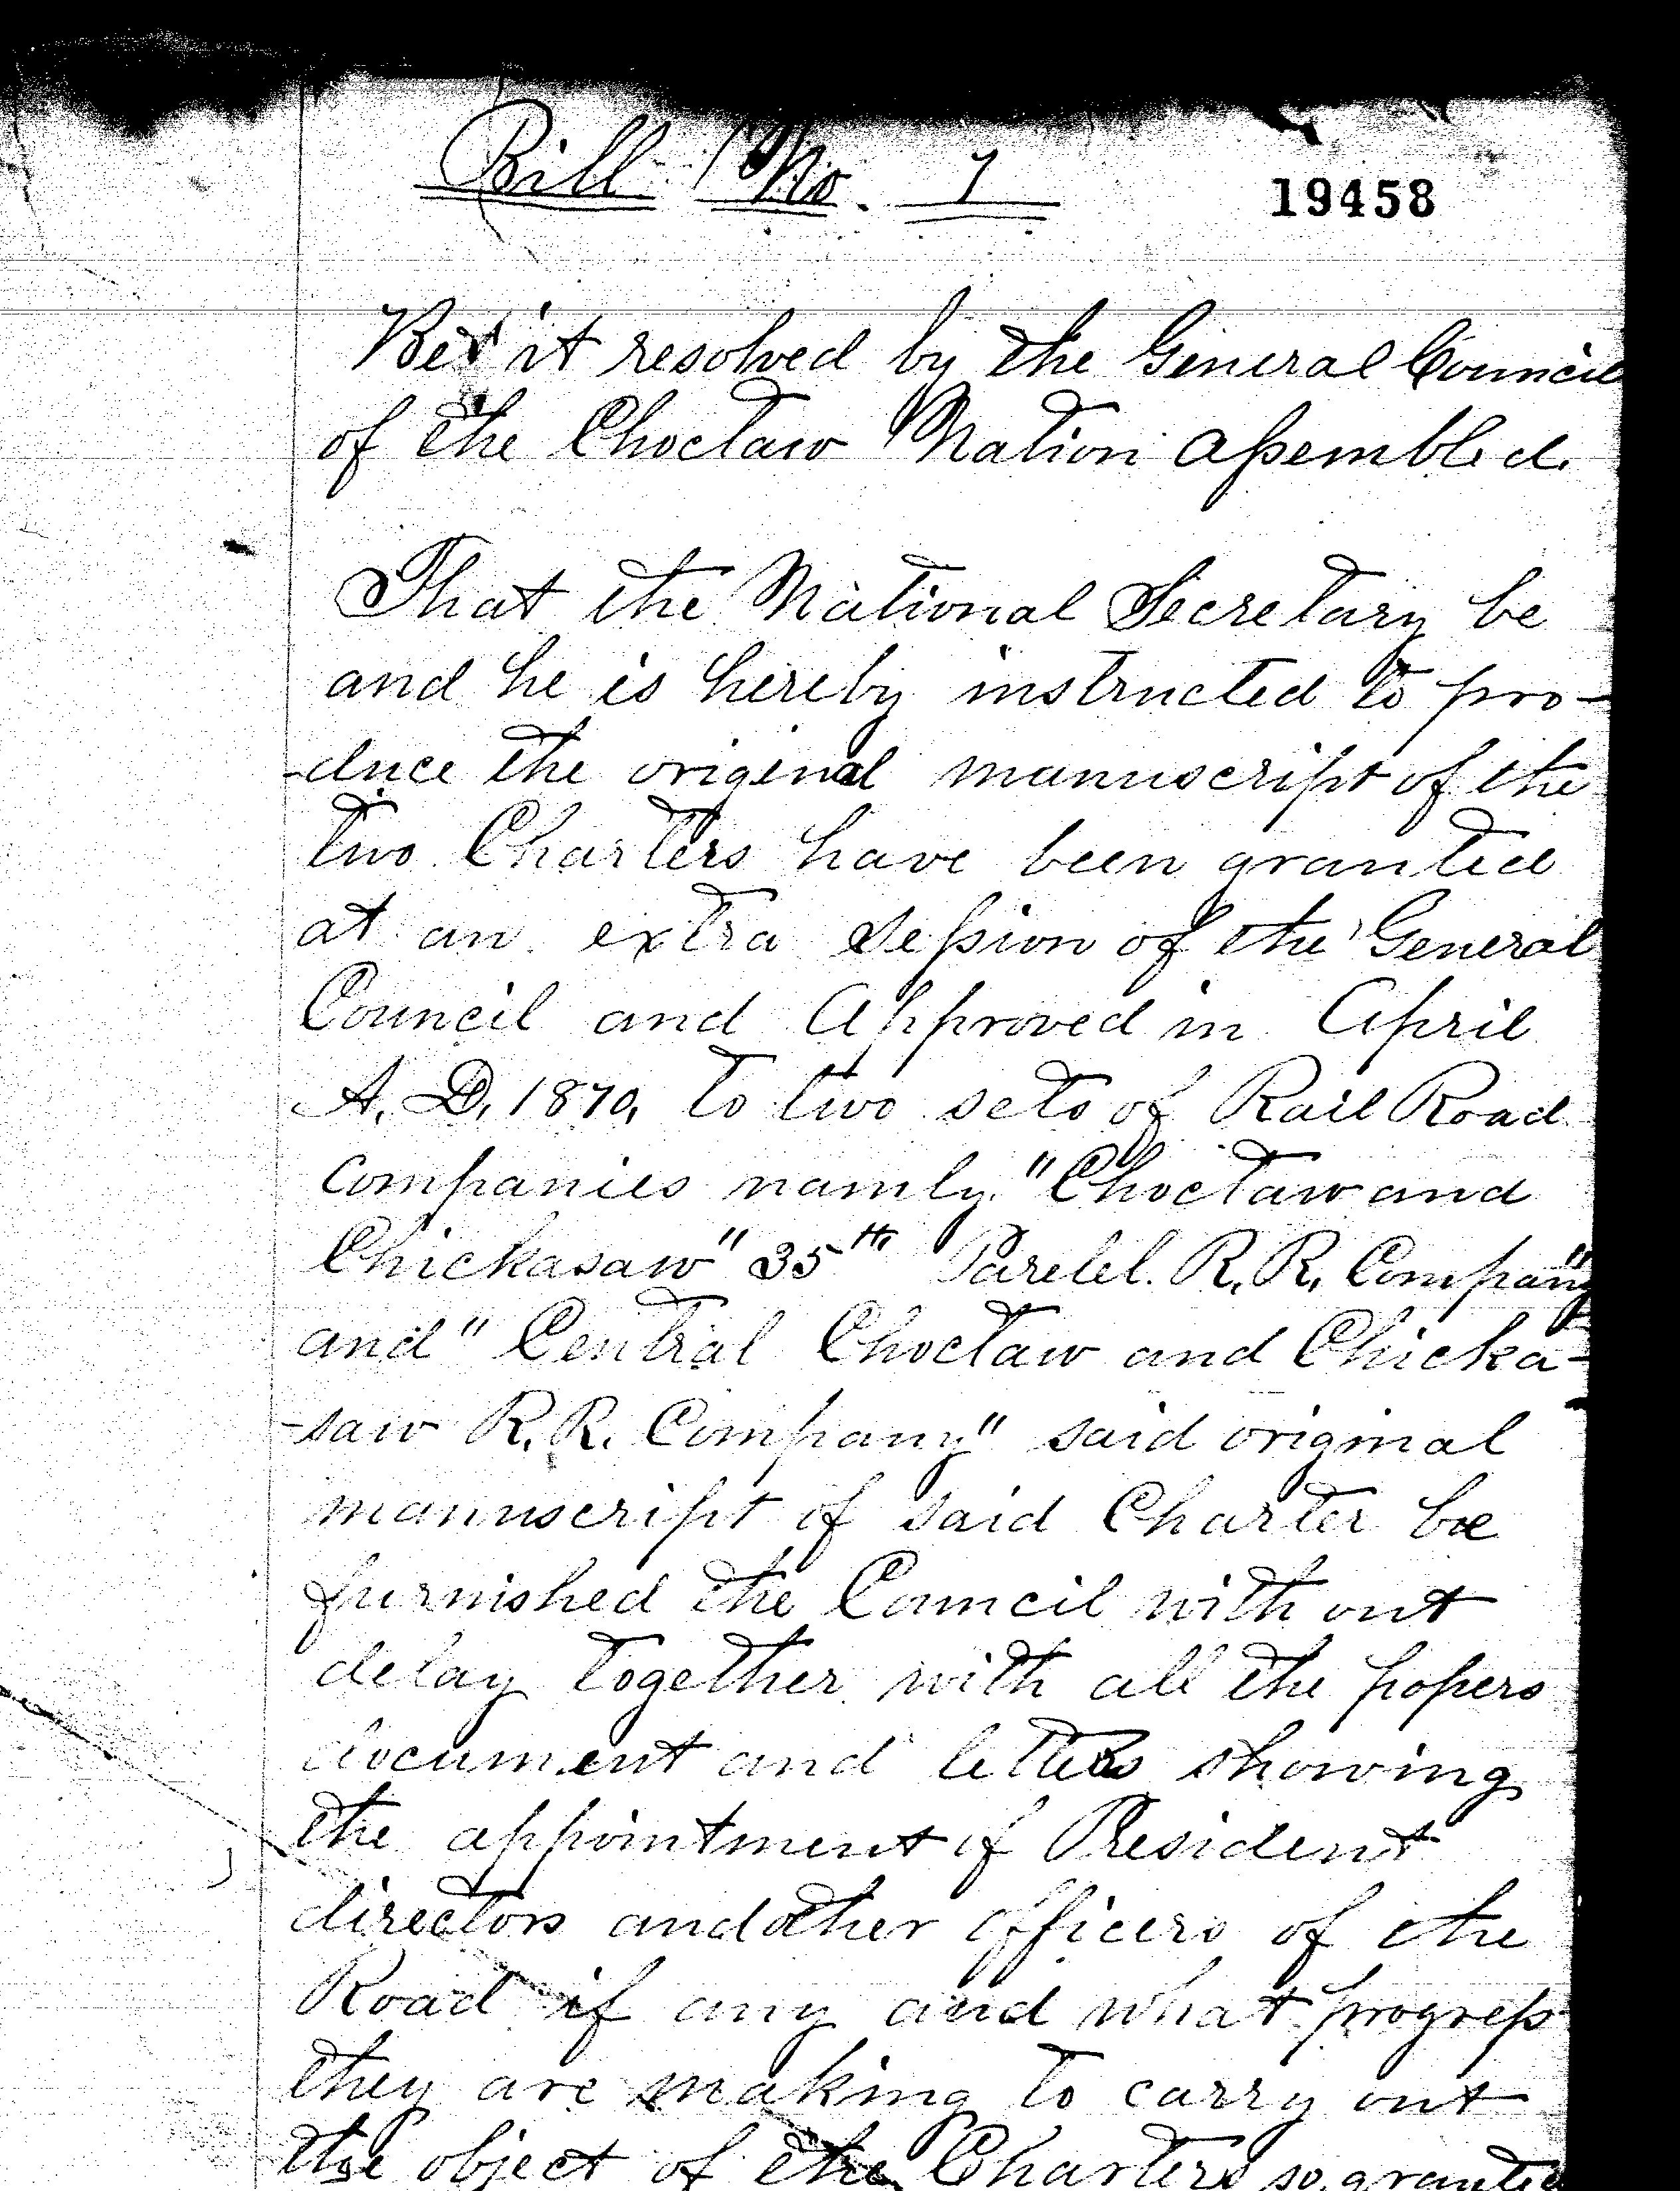 Bill No. 7
19458
Be it resolved by the General Council
of the Choctaw Nation assembled.
That the National Secretary be
and he is hereby instructed to pro-
-duce the original manuscript of the
two Charters have been granted
at an extra session of the General
Council and Approved in April
A. D. 1870, to two sets of Rail Road
Companies namly. "Choctaw and
Chickasaw" 35th Parelel. R. R. Company"
and "Central Choctaw and Chicka-
-saw R. R. Company" said original
manuscript of said Charter be
furnished the Council with out
delay together with all the popers
document and letters showing
the appointment of President
directors and other officers of the
Road if any and what progress
they are making to carry out
the object of the Charters so granted